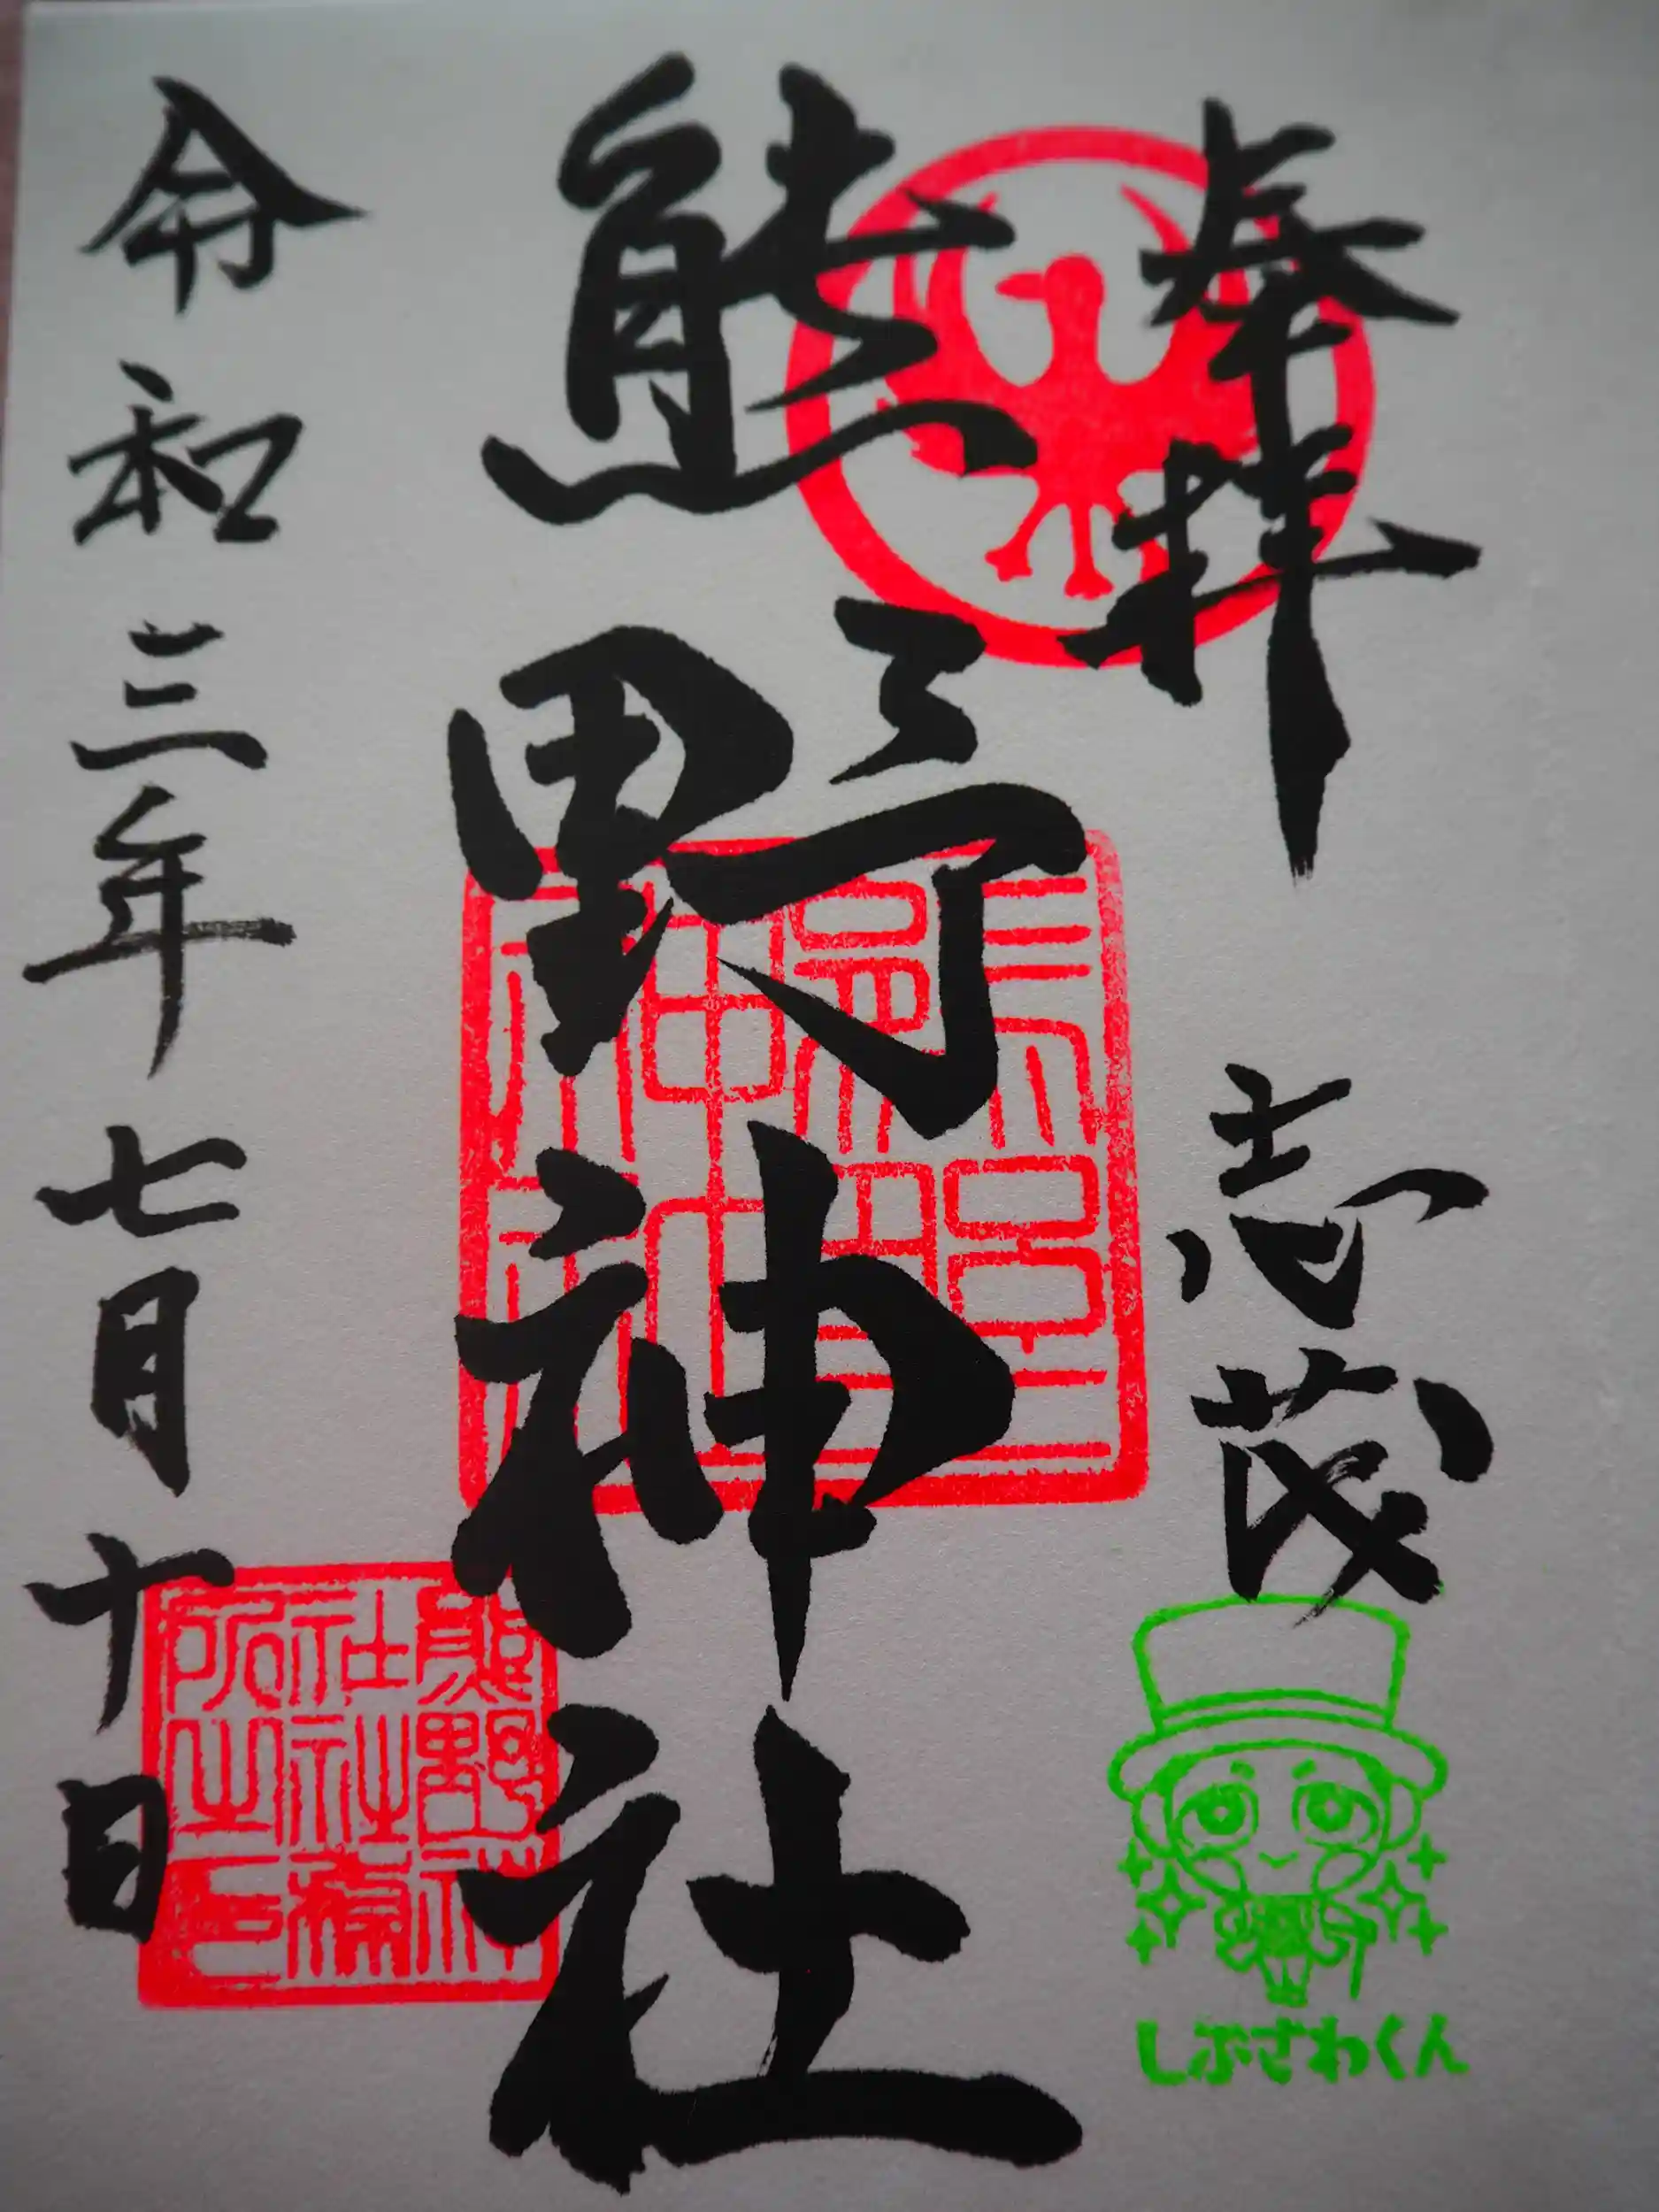 奉拝 志茂
熊野神社
令和三年七月十日
しぶさわくん
熊野神社
熊野神社社務所之印